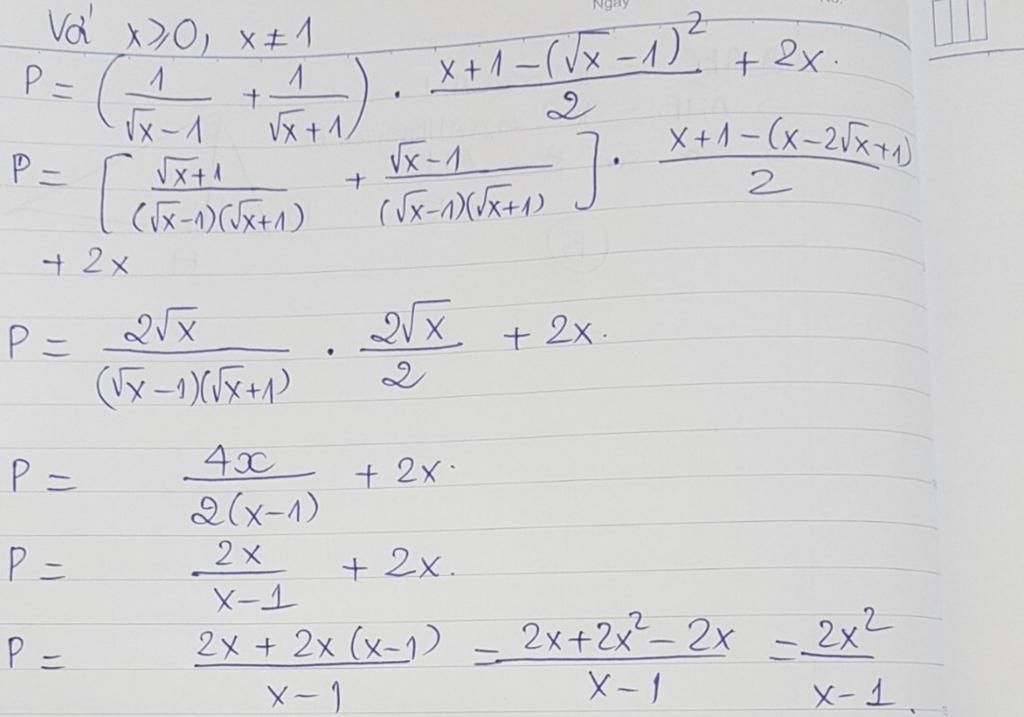 Ngày
Với x ⩾ 0, x ≠ 1
P = (1/(√x − 1) + 1/(√x + 1)) · (x + 1 − (√x − 1)²)/2 + 2x.
P = [(√x + 1)/((√x − 1)(√x + 1)) + (√x − 1)/((√x − 1)(√x + 1))] · (x + 1 − (x − 2√x + 1))/2
+ 2x
P = 2√x/((√x − 1)(√x + 1)) · 2√x/2 + 2x.
P = 4x/(2(x − 1)) + 2x.
P = 2x/(x − 1) + 2x.
P = (2x + 2x(x − 1))/(x − 1) = (2x + 2x² − 2x)/(x − 1) = 2x²/(x − 1).